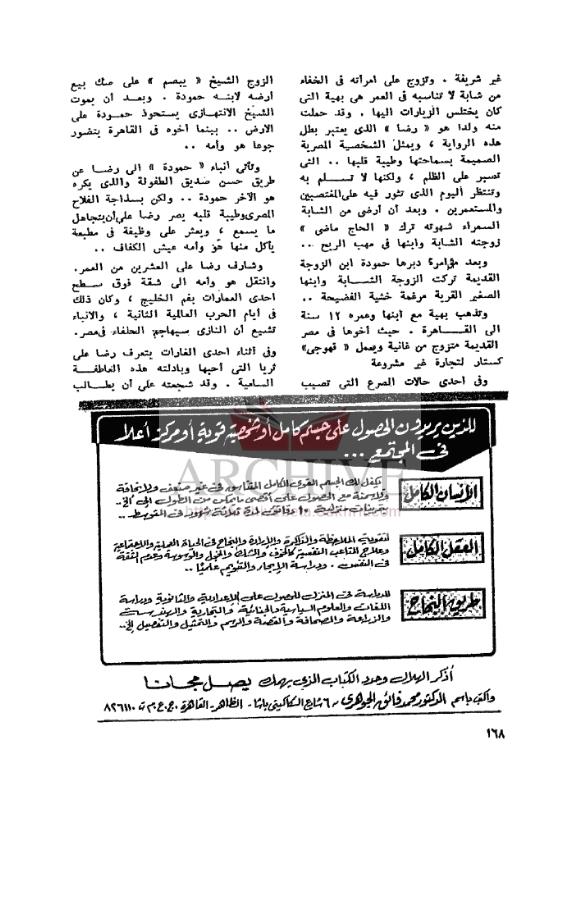 غير شريفة . وتزوج على امرأته فى الخفاء
من شابة لا تناسبه فى العمر هى بهية التى
كان يختلس الزيارات اليها . وقد حملت
منه ولدا هو « رضا » الذى يعتبر بطل
هذه الرواية ، ويمثل الشخصية المصرية
الصميمة بسماحتها وطيبة قلبها .. التى
تصبر على الظلم ، ولكنها لا تسلم به
وتنتظر اليوم الذى تثور فيه على المغتصبين
والمستعمرين . وبعد أن أرضى من الشابة
السمراء شهوته ترك « الحاج ماضى »
زوجته الشابة وابنها فى مهب الريح ...
وبعد مؤامرة دبرها حمودة ابن الزوجة
القديمة تركت الزوجة الشابة وابنها
الصغير القرية مرغمة خشية الفضيحة ..
وتذهب بهية مع ابنها وعمره ١٢ سنة
الى القاهرة . حيث أخوها فى مصر
القديمة متزوج من غانية ويعمل « قهوجى»
كستار لتجارة غير مشروعة
وفى احدى حالات الصرع التى تصيب
الزوج الشيخ « يبصم » على صك بيع
أرضه لابنه حمودة . وبعد أن يموت
الشيخ الانتهازى يستحوذ حمودة على
الارض .. بينما أخوه فى القاهرة يتضور
جوعا هو وأمه ..
وتأتى أنباء « حمودة » الى رضا عن
طريق حسن صديق الطفولة والذى يكره
هو الآخر حمودة .. ولكن بسذاجة الفلاح
المصرى وطيبة قلبه يصر رضا على أن يتجاهل
ما يسمع ، ويعثر على وظيفة فى مطبعة
يأكل منها هو وأمه عيش الكفاف ..
وشارف رضا على العشرين من العمر.
وانتقل هو وأمه الى شقة فوق سطح
احدى العمارات بفم الخليج ، وكان ذلك
فى أيام الحرب العالمية الثانية ، والانباء
تشيع أن النازى سيهاجم الحلفاء فى مصر.
وفى أثناء احدى الغارات يتعرف رضا على
ثريا التى أحبها وبادلته هذه العاطفة
السامية . وقد شجعته على أن يطالب
للذين يريدون الحصول على جسم كامل أو شخصية قوية أو مركز أعلا
فى المجتمع ...
ARCHIVE
الإنسان الكامل
يكفل لك الجسم القوى الكامل المقاييس فى غير ضعف ولا نحافة
ولا سمنة مع الحصول على أقصى ما يمكن من الطول إلى آخر..
بتمرينات منزلية ١٠ دقائق لمدة ثلاثة شهور فى المتوسط...
العقل الكامل
لتقوية الملاحظة والذاكرة والإرادة والنجاح فى الحياة العملية والاجتماعية
وعلاج المتاعب النفسية كالخوف والشك والخجل والوسوسة وعدم الثقة
فى النفس . ودراسة الإيحاء والتنويم علميًا..
طريق النجاح
للدراسة فى المنزل للحصول على الإعدادية والثانوية ودراسة
اللغات والعلوم السياسية والجنائية والتجارية والهندسية
والزراعة والصحافة والقصة والرسم والتمثيل والتفصيل إلخ..
أذكر الهلال وحدد الكتاب الذى يهمك يصل مجانا
واكتب باسم الدكتور محمد فائق الجوهرى - ٦ شارع السكاكينى باشا - الظاهر - القاهرة . ج.ع.م ت ٨٢٦١١٠
١٦٨